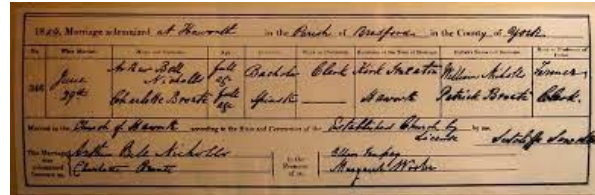 1854. Marriage solemnized at Haworth in the Parish of Bradford in the County of York
No. When Married. Name and Surname. Age Condition. Rank or Profession. Residence at the Time of Marriage. Father's Name and Surname. Rank or Profession of Father.
June 29th Arthur Bell Nicholls full age Bachelor Clerk Kirk Smeaton William Nicholls Farmer
Charlotte Brontë full age Spinster Haworth Patrick Brontë Clerk.
Married in the Church of Haworth according to the Rites and Ceremonies of the Established Church by License by me,
Sutcliffe Sowden
This Marriage was solemnized between us, Arthur Bell Nicholls Charlotte Brontë in the Presence of us, Ellen Nussey Margaret Wooler